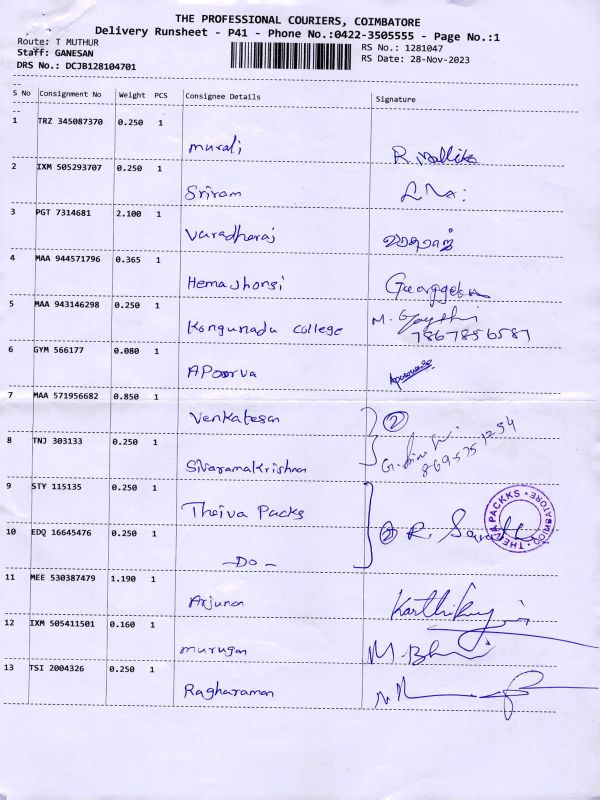 THE PROFESSIONAL COURIERS, COIMBATORE
Delivery Runsheet - P41 - Phone No.:0422-3505555 - Page No.:1
Route: T MUTHUR RS No.: 1281047
Staff: GANESAN RS Date: 28-Nov-2023
DRS No.: DCJB128104701
S No Consignment No Weight PCS Consignee Details Signature
1 TRZ 345087370 0.250 1
Murali R. Mallika
2 IXM 505293707 0.250 1
Sriram
3 PGT 7314681 2.100 1
Varadharaj வரதராஜ்
4 MAA 944571796 0.365 1
Hema Jhansi
5 MAA 943146298 0.250 1
Kongunadu college M. Gayathri
7867856587
6 GYM 566177 0.080 1
APoorva
7 MAA 571956682 0.850 1
Venkatesan 2
8 TNJ 303133 0.250 1
Sivaramakrishnan 8695751234
9 STY 115135 0.250 1
Theiva Packs
THEIVA PACKKS COIMBATORE
10 EDQ 16645476 0.250 1
-Do- 2 R.
11 MEE 530387479 1.190 1
Arjunan
12 IXM 505411501 0.160 1
murugan
13 TSI 2004326 0.250 1
Ragharaman